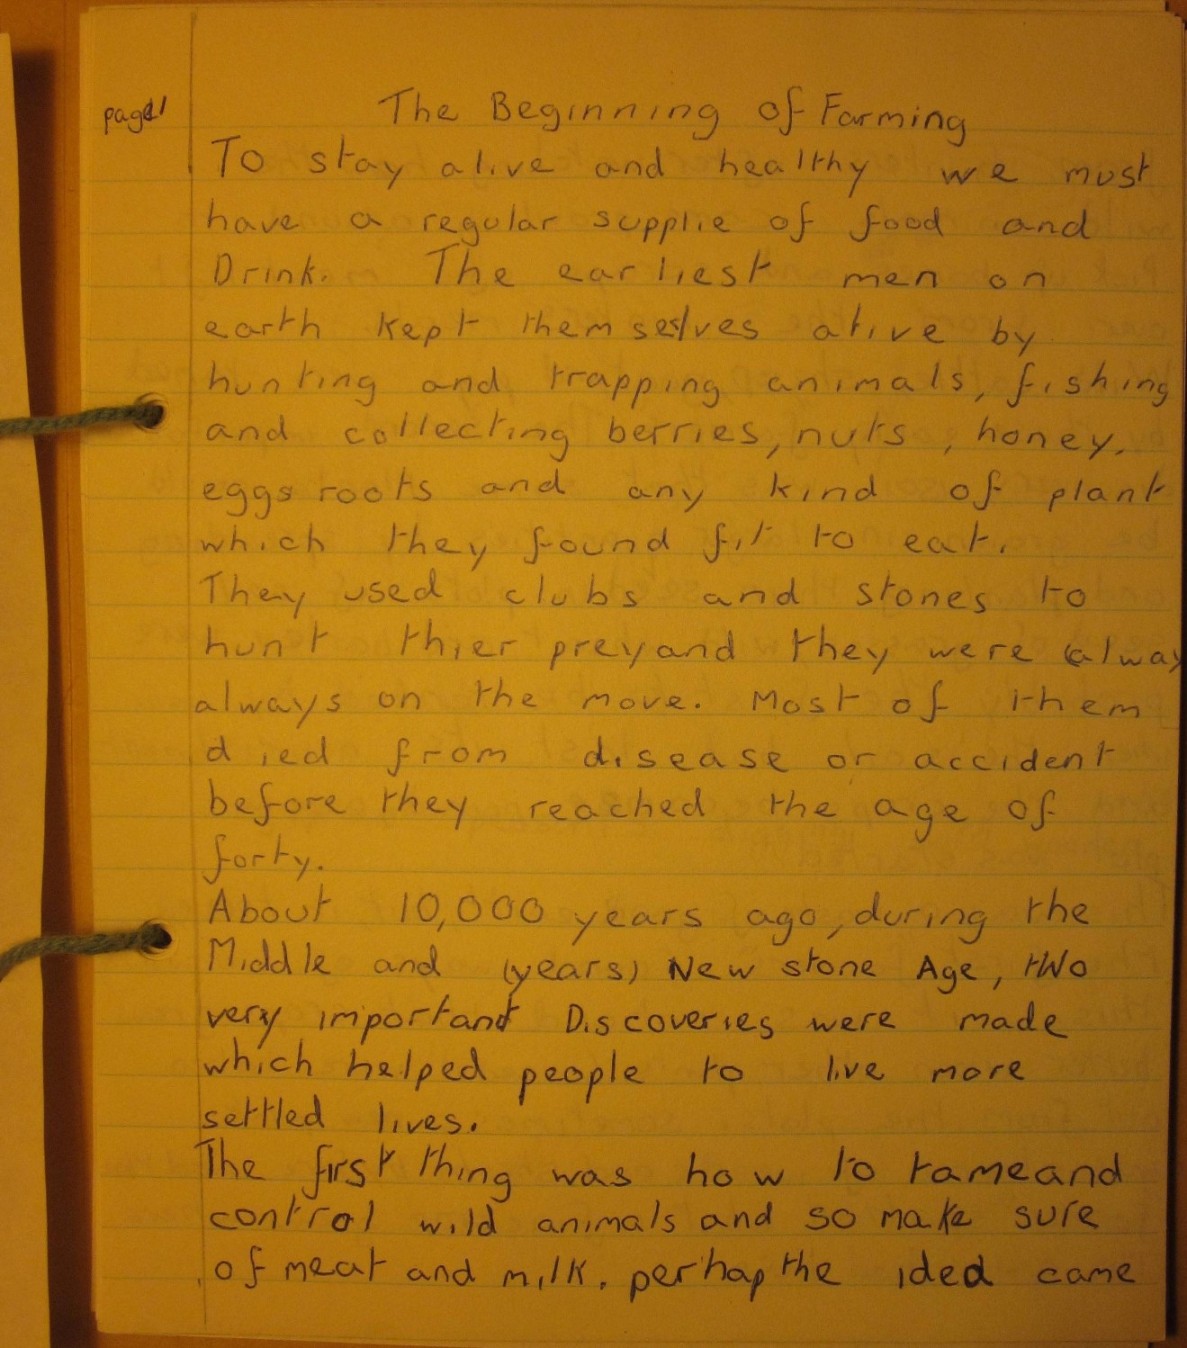 page 1
The Beginning of Farming
To stay alive and healthy we must
have a regular supplie of food and
Drink. The earliest men on
earth kept themselves alive by
hunting and trapping animals, fishing
and collecting berries, nuts, honey,
eggs roots and any kind of plant
which they found fit to eat.
They used clubs and stones to
hunt thier prey and they were (alway
always on the move. Most of them
died from disease or accident
before they reached the age of
forty.
About 10,000 years ago, during the
Middle and (years) New stone Age, two
very important Discoveries were made
which helped people to live more
settled lives.
The first thing was how to tame and
control wild animals and so make sure
of meat and milk. perhap the idea came